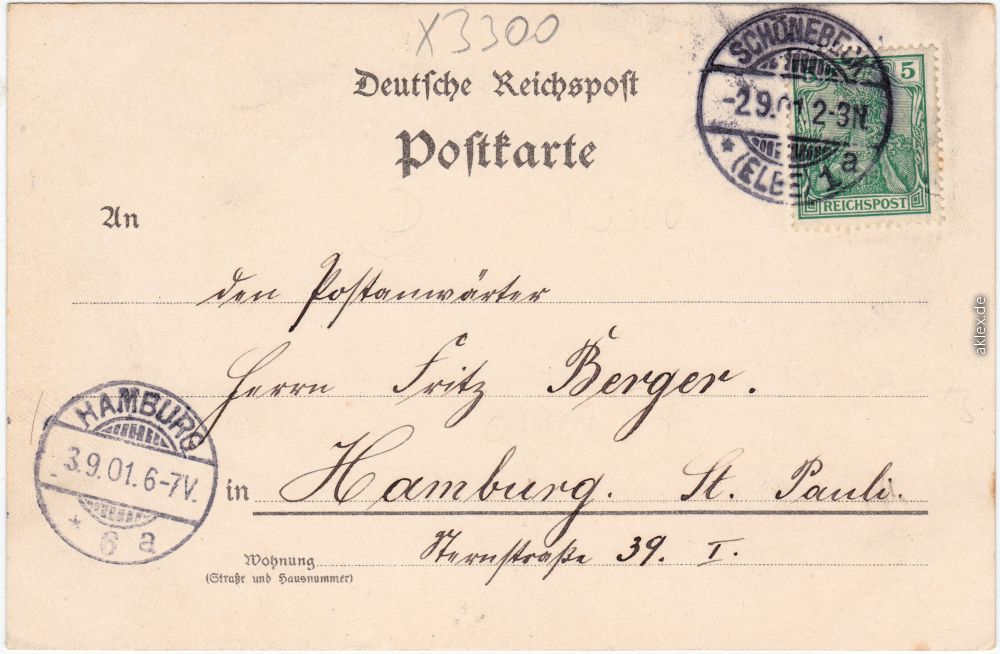 X3300
Deutsche Reichspost
Postkarte
SCHÖNEBECK
-2.9.01 2-3N.
* (ELBE) 1a
5
REICHSPOST
An
den Postanwärter
Herrn Fritz Berger.
in Hamburg. St. Pauli.
Sternstraße 39. I.
Wohnung
(Straße und Hausnummer)
HAMBURG
3.9.01.6-7V.
* 6 a
aklex.de